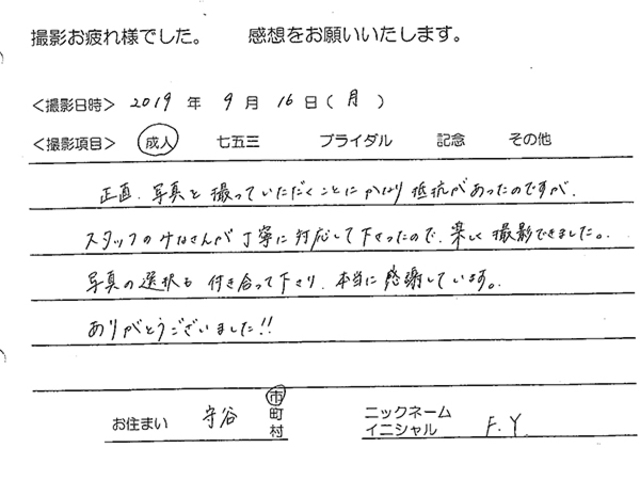 撮影お疲れ様でした。 感想をお願いいたします。
＜撮影日時＞ 2019 年 9 月 16 日(月)
＜撮影項目＞ 成人 七五三 ブライダル 記念 その他
正直、写真を撮っていただくことにかなり抵抗があったのですが、
スタッフのみなさんが丁寧に対応して下さったので、楽しく撮影できました。
写真の選択も付き合って下さり、本当に感謝しています。
ありがとうございました!!
お住まい 守谷 市町村
ニックネーム
イニシャル F.Y